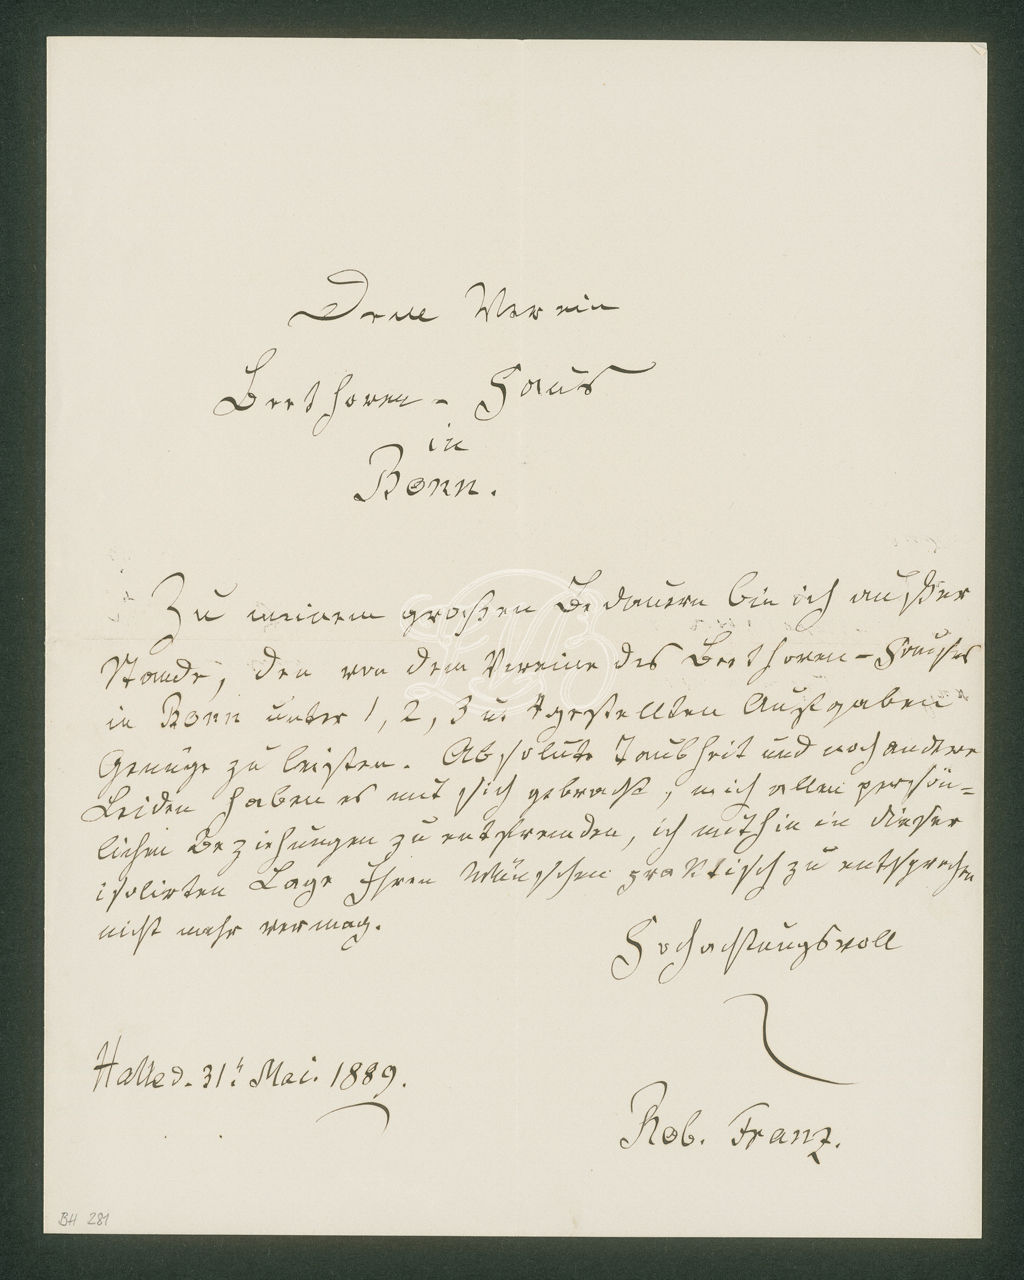 Dem Verein
Beethoven-Haus
in
Bonn.
Zu meinem großen Bedauern bin ich außer
Stande, den von dem Vereine des Beethoven-Hauses
in Bonn unter 1, 2, 3 u. 4 gestellten Aufgaben
Genüge zu leisten. Absolute Taubheit und noch andere
Leiden haben es mit sich gebracht, mich allen persön=
lichen Beziehungen zu entfremden, ich mithin in dieser
isolirten Lage Ihren Wünschen praktisch zu entsprechen
nicht mehr vermag.
Hochachtungsvoll
Halle d. 31t Mai. 1889.
Rob. Franz.
BH 281